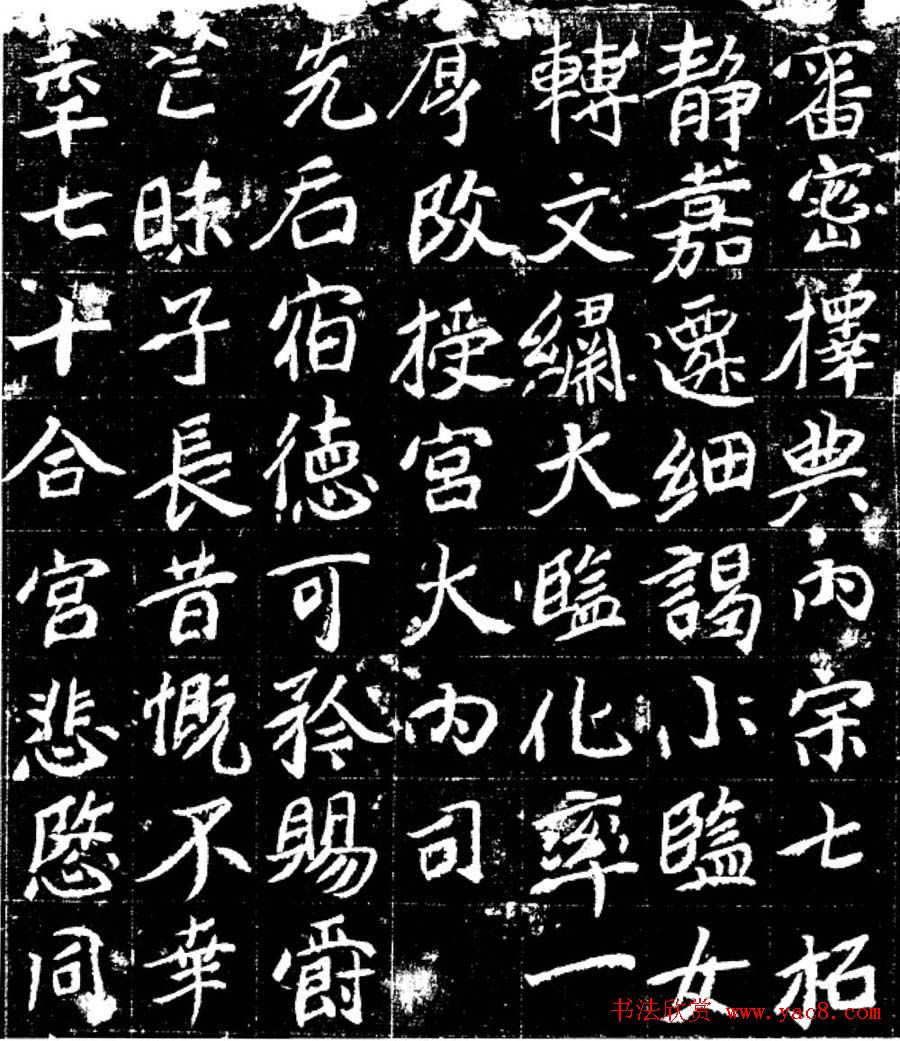 審密擇典內宗七柘
靜嘉遷細謁小監女
轉文繡大監化率一
厚改授宮大內司
先后宿德可矜賜爵
芒昧子長昔慨不幸
年七十合宮悲慜同
书法欣赏 www.yac8.com